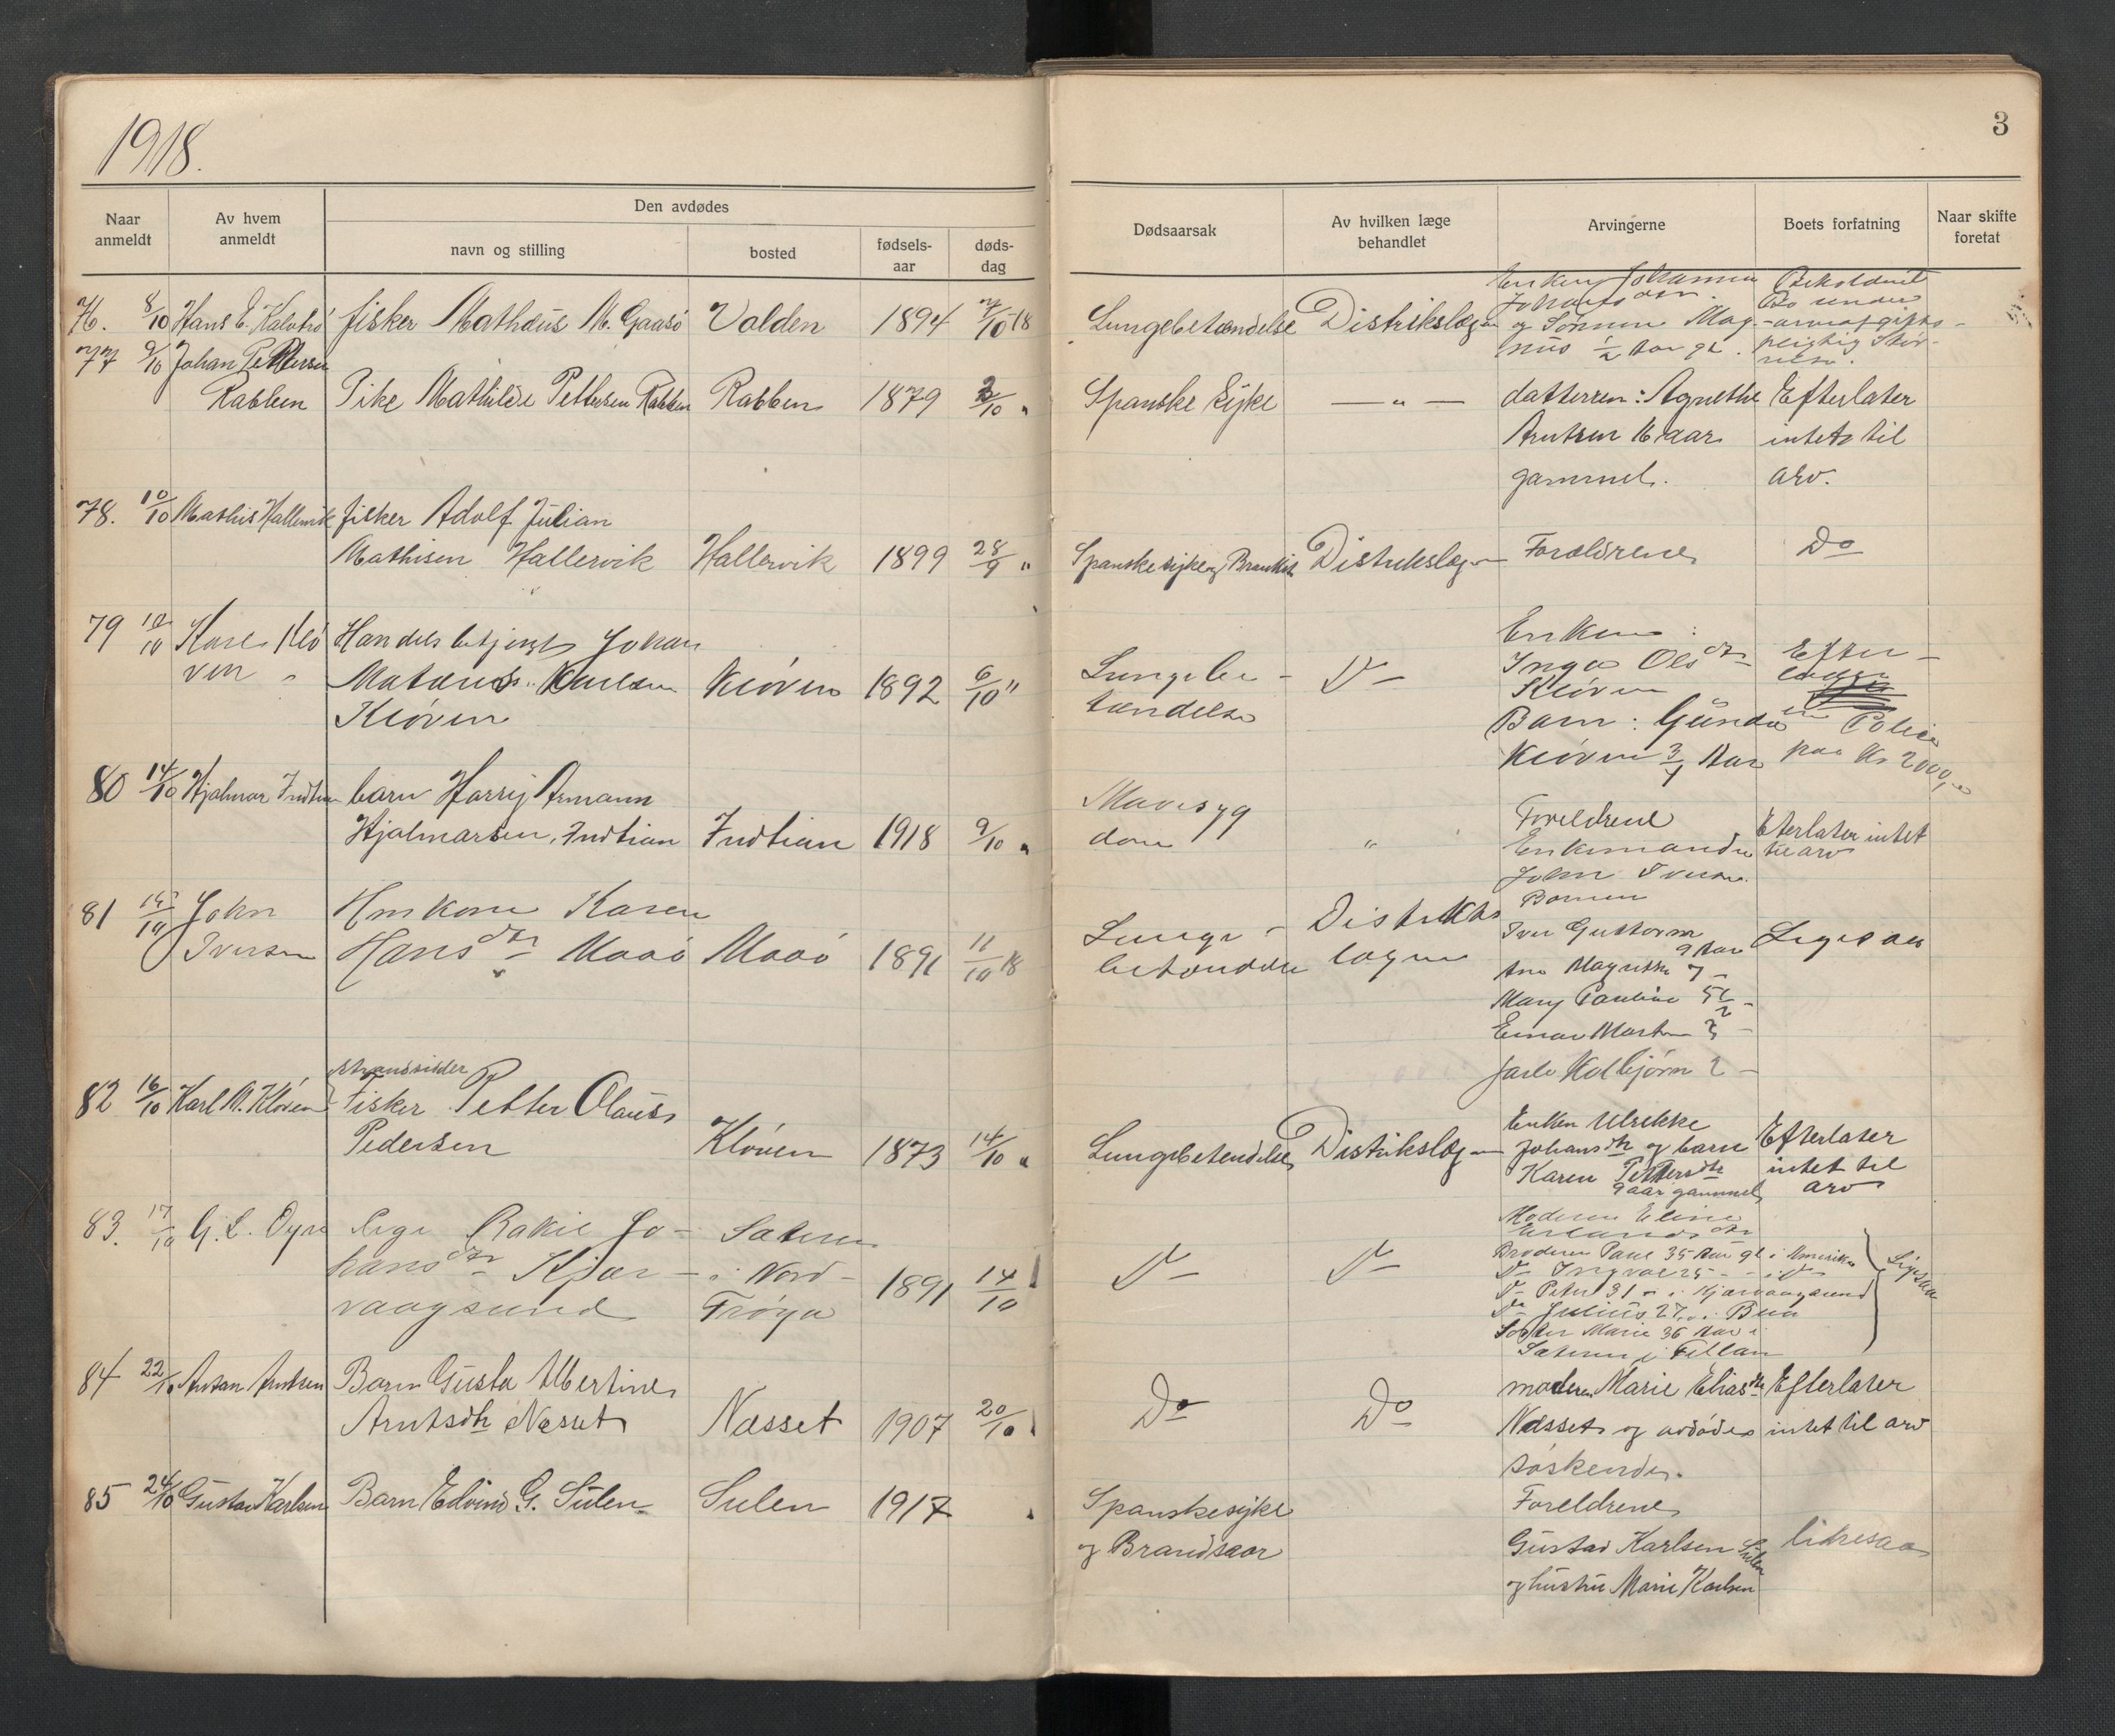 1918.
3
Naar anmeldt
Av hvem anmeldt
Den avdødes
navn og stilling
bosted
fødsels-aar
døds-dag
Dødsaarsak
Av hvilken læge behandlet
Arvingerne
Boets forfatning
Naar skifte foretat
76. 8/10 Hans E. Kalvhø fisker Mathæus M. Gaasø Valden 1894 7/10 18 Lungebetændelse Distrikslægen
Enken Johanna
og Sønnen Mag-
nus 1/2 Aar gl.
Beholdent
Bo under
arveafgifts-
pligtig Stør-
relse.
77 9/10 Johan Pettersen
Rabben Pike Mathilde Pettersen Rabben Rabben 1879 2/10 " Spanske syke — " — datteren: Agnethe Efterlater
Arntsen 16 aar intet til
gammel. arv.
78. 10/10 Mathis Hallervik fisker Adolf Julian
Mathisen Hallervik Hallervik 1899 28/9 " Spanske syke og Bronkit Distrikslægen Forældrene Do
79 12/10 Karl Klø Handelsbetjent Johan
ven Karlsen Kløven 1892 6/10 " Lungebe- D—
Kløven tændelse
Enken:
Inga Olsdtr
Kløven
Barn: Gunda
Kløven 3/4 Aar
Efter-
en Police
paa Kr 2000,
80 14/10 Hjalmar Indtian barn Harry Armann
Hjalmarsen, Indtian Indtian 1918 9/10 " Mavesyg
dom "
Foreldrene
Efterlater intet
til arv
81 15/10 John Hmkone Karen
Iversen Hansdtr Maaø Maaø 1891 11/10 18 Lunge-
betændelse
Distrikts
lægen
Enkemanden
John Iversen
Børnene
Iver Guttorm
9 Aar
Ana Magrethe 7 -
Mary Pauline 5 1/2 -
Einar Martin 3 -
Jarle Kolbjørn 2 -
Ligesaa
82 16/10 Karl M. Kløven strandsidder
Fisker Petter Olaus
Pedersen Kløven 1873 14/10 " Lungebetendelse Distrikslægen
Enken Ulrikke
Johansdtr og barn
Karen Pettersdtr
9 aar gammel
Efterlater
intet til
arv
83. 17/10 G. L. Øyen Pige Rakel Jo-
hansdtr Kjær-
vaagsund
Sætren
i Nord-
Frøya
1891 14/10 D— D—
Moderen Eline
Erlandsdtr
Broderen Paul 35 Aar gl i Amerika
D— Ingval 25 - - i D—
D— Peter 31 - i Kjærvaagsund
Do Julius 27 " i Bua
Søster Marie 36 Aar i
Sætren i Fillan
Ligesaa
84 22/10 Antan Arntsen Barn Gusta Albertine
Arntsdtr Næsset Næsset 1907 20/10 Do Do
moderen Marie Eliasdtr Efterlater
Næsset og avdødes intet til arv
søskende.
85 24/10 Gustav Karlsen Barn Edvind G. Sulen Sulen 1917 " Spanskesyke
og Brandsaar
Foreldrene
Gustav Karlsen Sulen
og hustru Marie Karlsen
likesaa